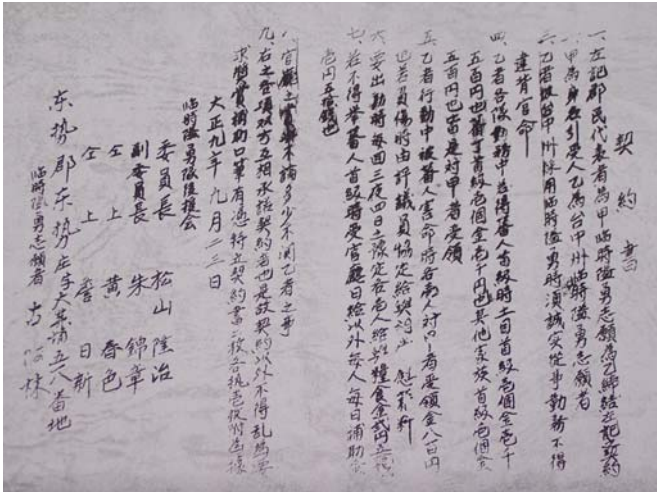 契約書
一、左記郡民代表者為甲臨時隘勇志願為乙締結左記契約
一、甲為身在引受人乙為台中州臨時隘勇志願者
二、乙者被台中州採用臨時隘勇時須誠实從事勤務不得
違背官命
四、乙者各隊勤務中若得蕃人首級時土目首級壱個金壱千
五百円也蕃丁首級壱個金壱千円也其他家族首級壱個金
五百円也當是対甲者受領
五、乙者行動中被蕃人害命時各商人対甲者受領金八百円
也若負傷時由評議員協定給與
六、要出勤時每回三夜四日之豫定在各人給與糧食金弐円五拾
七、若不得挙蕃人首級時受官廳日給以外每人每日補助金
壱円五拾錢也
八、官廳之賞與不論多少不関乙者之事
九、右之各項双方互相承諾契約者也是故契約以外不得乱為要
求狥賞補助口筆有憑特立契約書二枚各执壱枚附為據
大正九年九月二三日
臨時隘勇隊後援会
委員長 松山隆治
副委員長 朱錦章
仝上 黄春色
仝上 詹日新
东势郡东势庄字大茅埔五八番地
臨時隘勇志願者 古阿妹